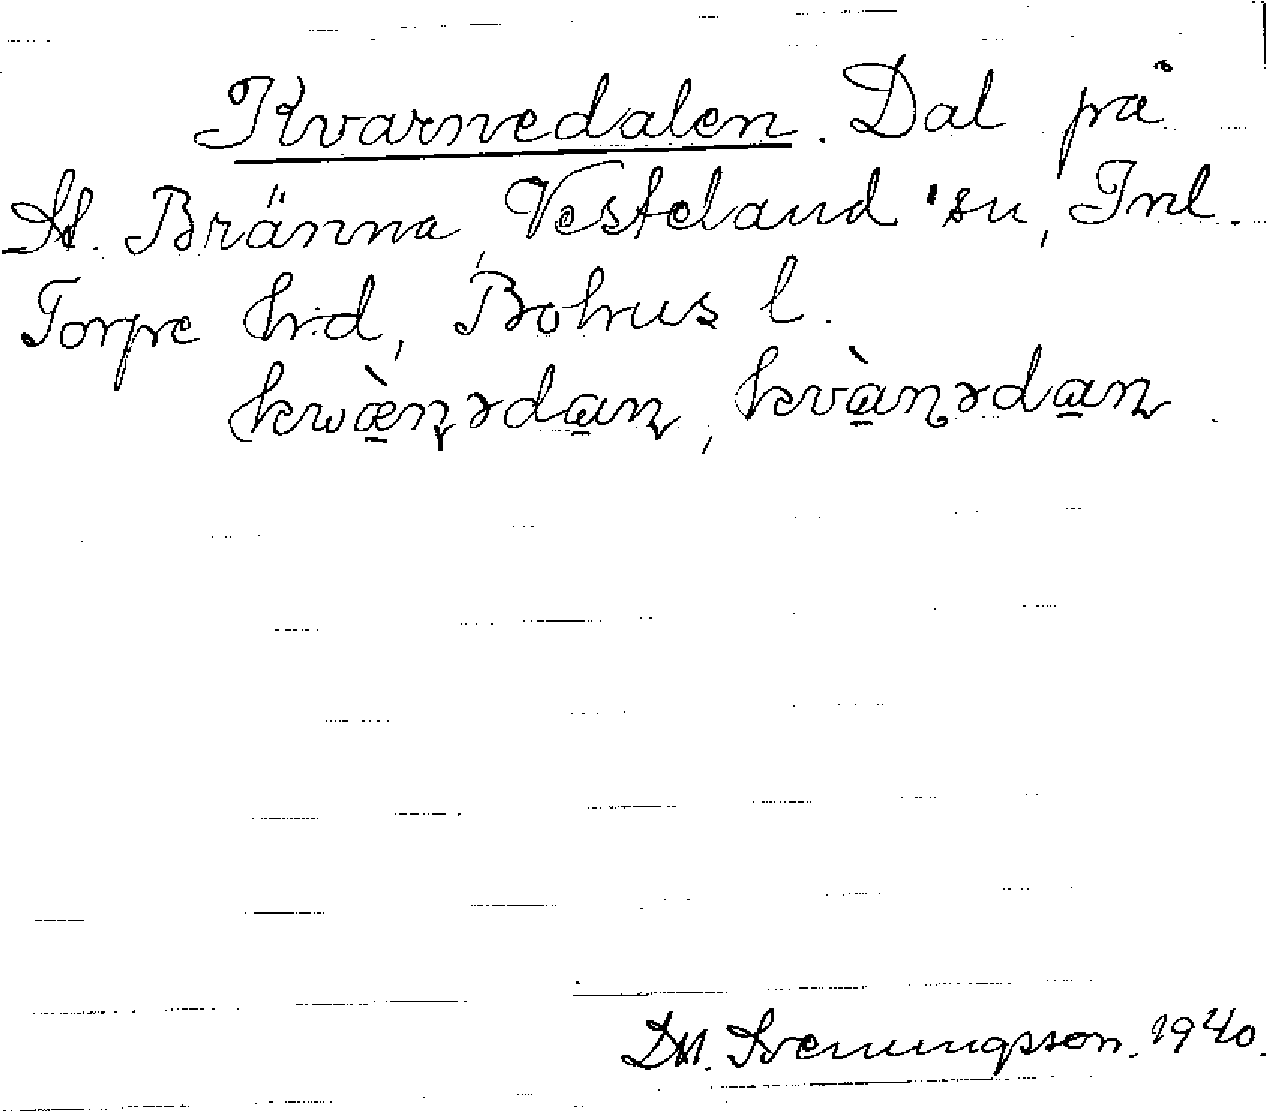 Kvarnedalen. Dal på
St. Bränna, Vesteland 'sn, Inl.
Torpe hrd, Bohus l.
kwæ̀ṇədan, kvàṇədan.
DM. Svenungsson. 1940.